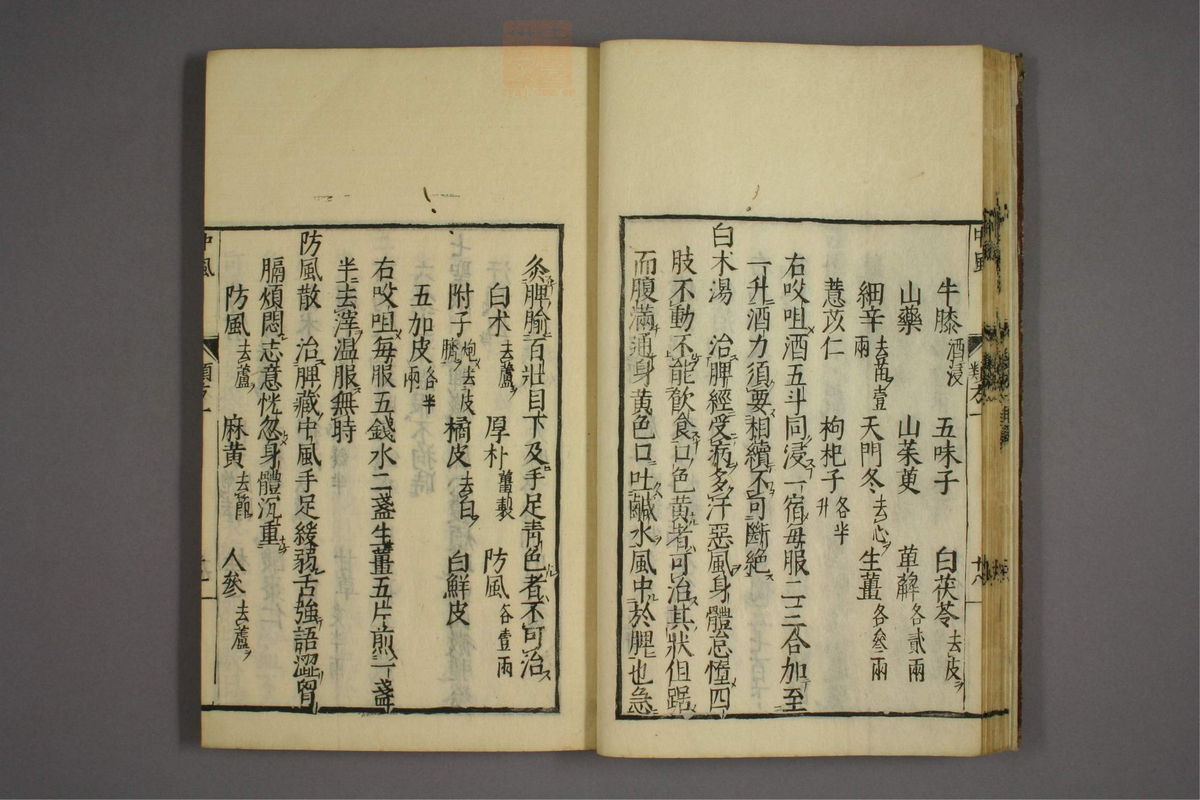 牛膝酒浸 五味子 白茯苓去皮
山藥 山茱萸 萆薢各貳兩
細辛去苗壹兩 天門冬去心 生薑各叄兩
薏苡仁 枸杞子各半升
右㕮咀酒五斗同浸一宿每服二三合加至
一升酒力須要相續不可斷絶
白术湯 治脾經受病多汗惡風身體怠惰四
肢不動不能飲食口色黄者可治其狀但踞
而腹滿通身黄色口吐鹹水風中於脾也急
灸脾腧百壯目下及手足靑色者不可治
白术去蘆 厚朴薑製 防風各壹兩
附子炮去皮臍 橘皮去白 白鮮皮
五加皮各半兩
右㕮咀每服五錢水二盞生薑五片煎一盞
半去滓温服無時
防風散 治脾藏中風手足緩弱舌強語澀胷
膈煩悶志意恍忽身體沉重
防風去蘆 麻黄去節 人參去蘆
中風